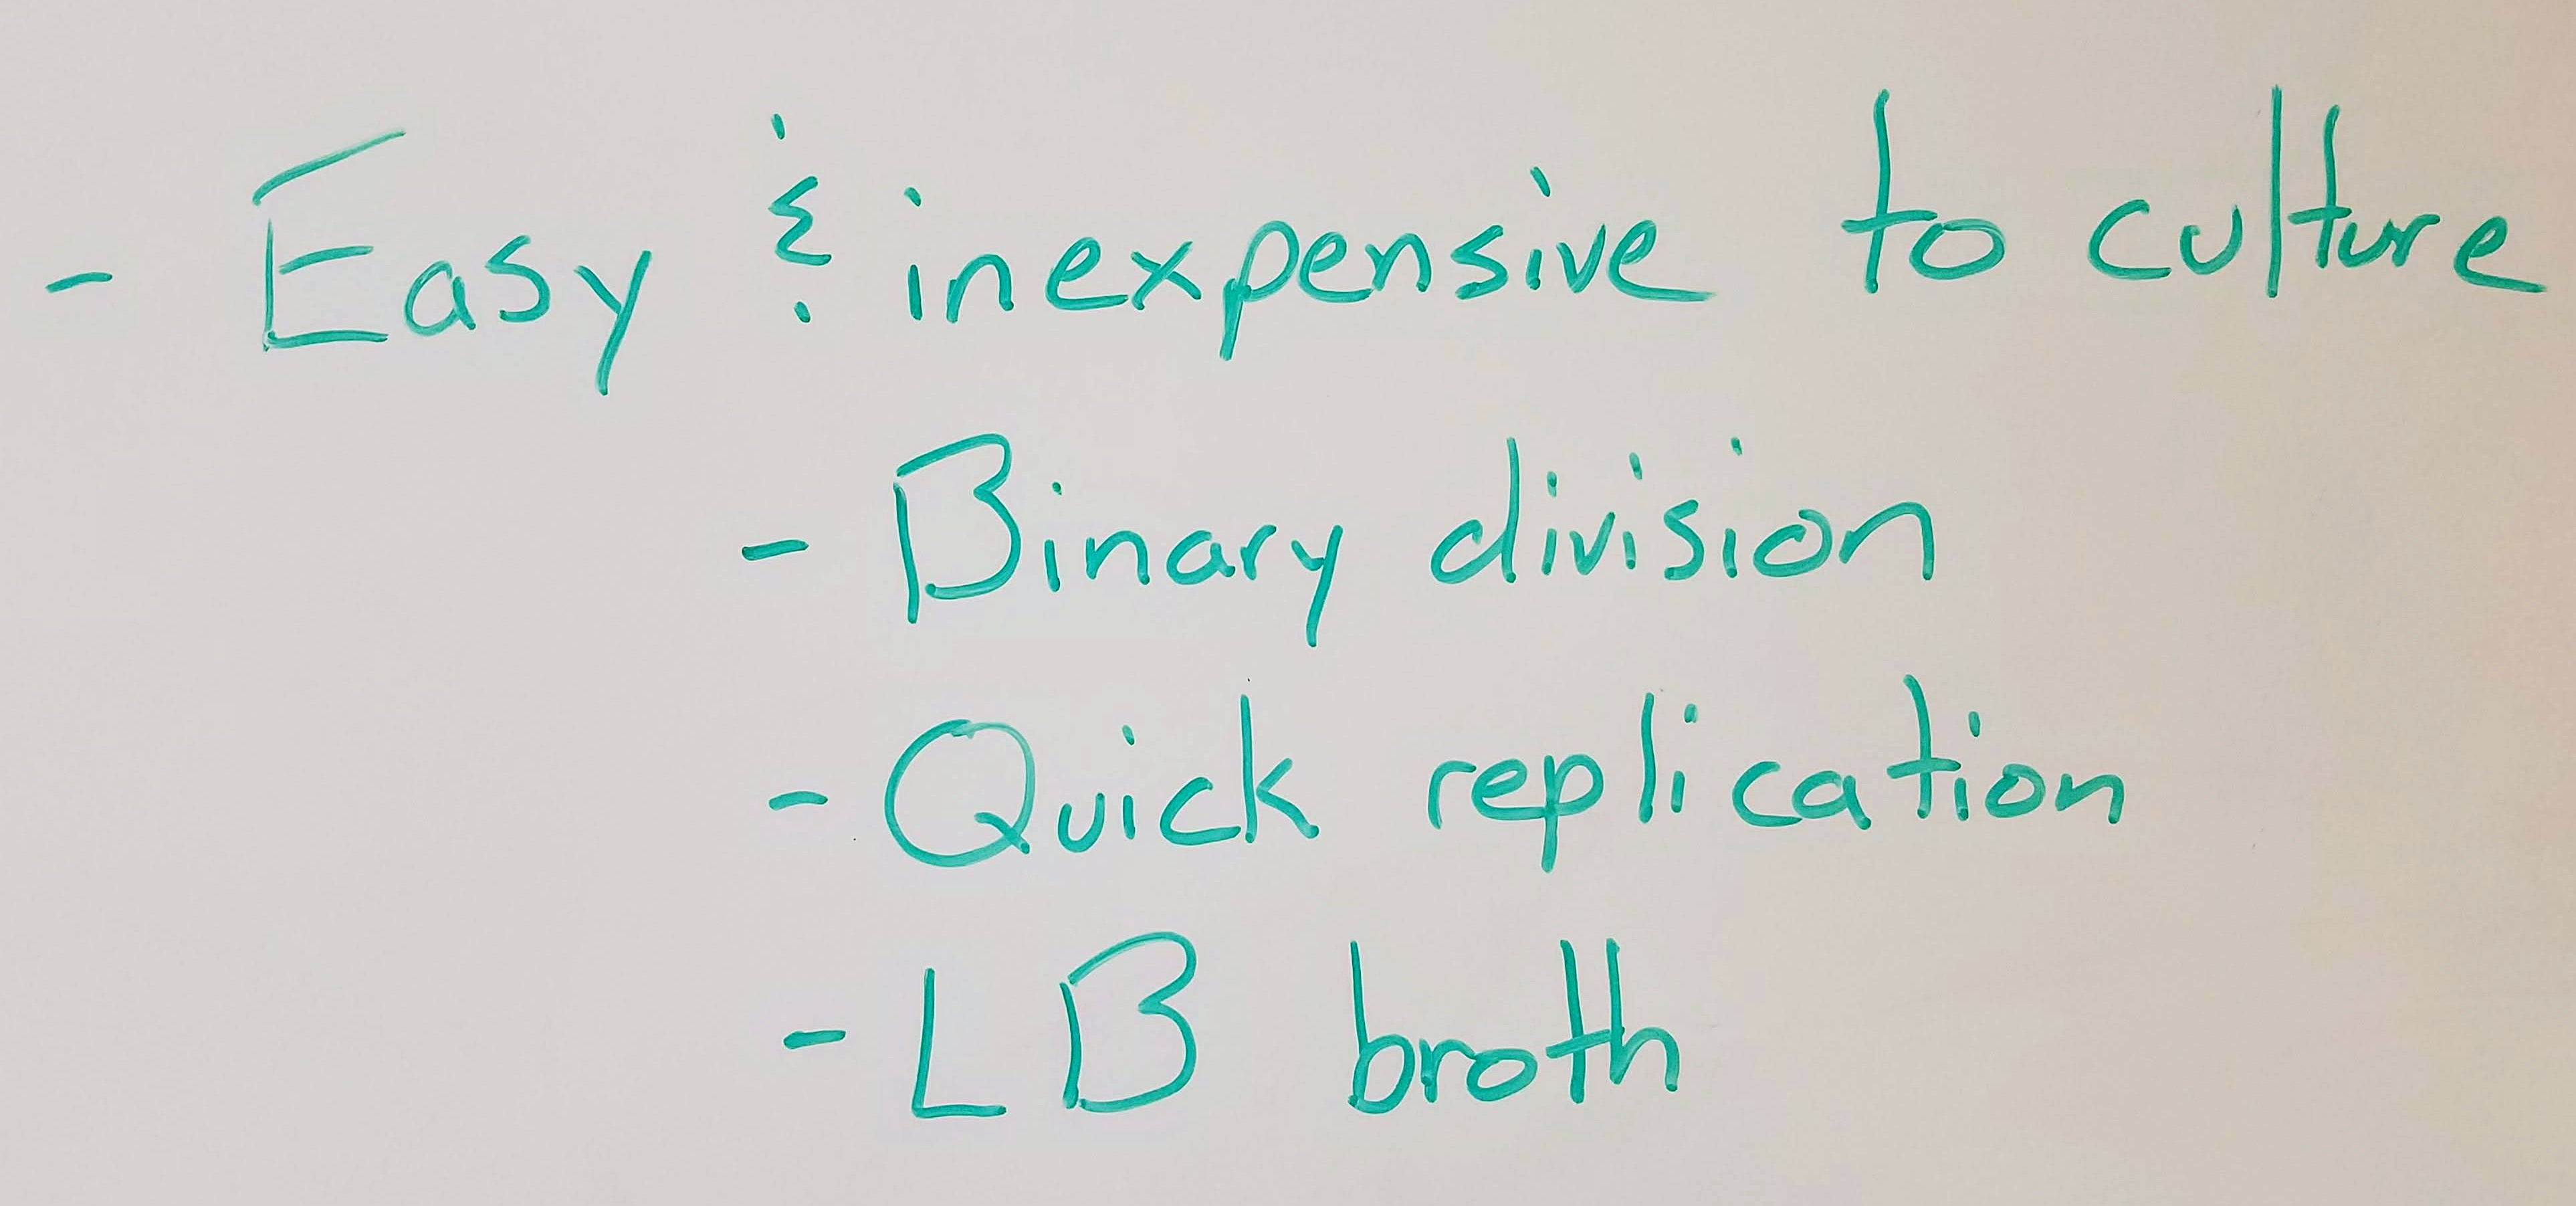 - Easy & inexpensive to culture
- Binary division
- Quick replication
- LB broth